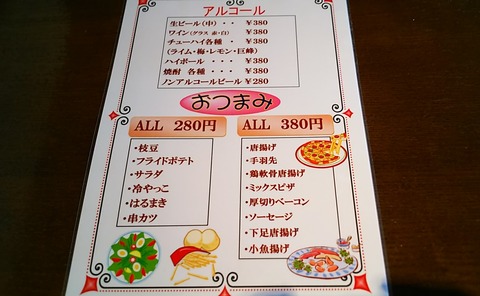 アルコール
生ビール(中)・・ ¥380
ワイン(グラス 赤・白) ¥380
チューハイ各種 ・ ¥380
(ライム・梅・レモン・巨峰)
ハイボール ・・・ ¥380
焼酎 各種 ・・・ ¥380
ノンアルコールビール ¥280
おつまみ
ALL 280円
・枝豆
・フライドポテト
・サラダ
・冷やっこ
・はるまき
・串カツ
ALL 380円
・唐揚げ
・手羽先
・鶏軟骨唐揚げ
・ミックスピザ
・厚切りベーコン
・ソーセージ
・下足唐揚げ
・小魚揚げ